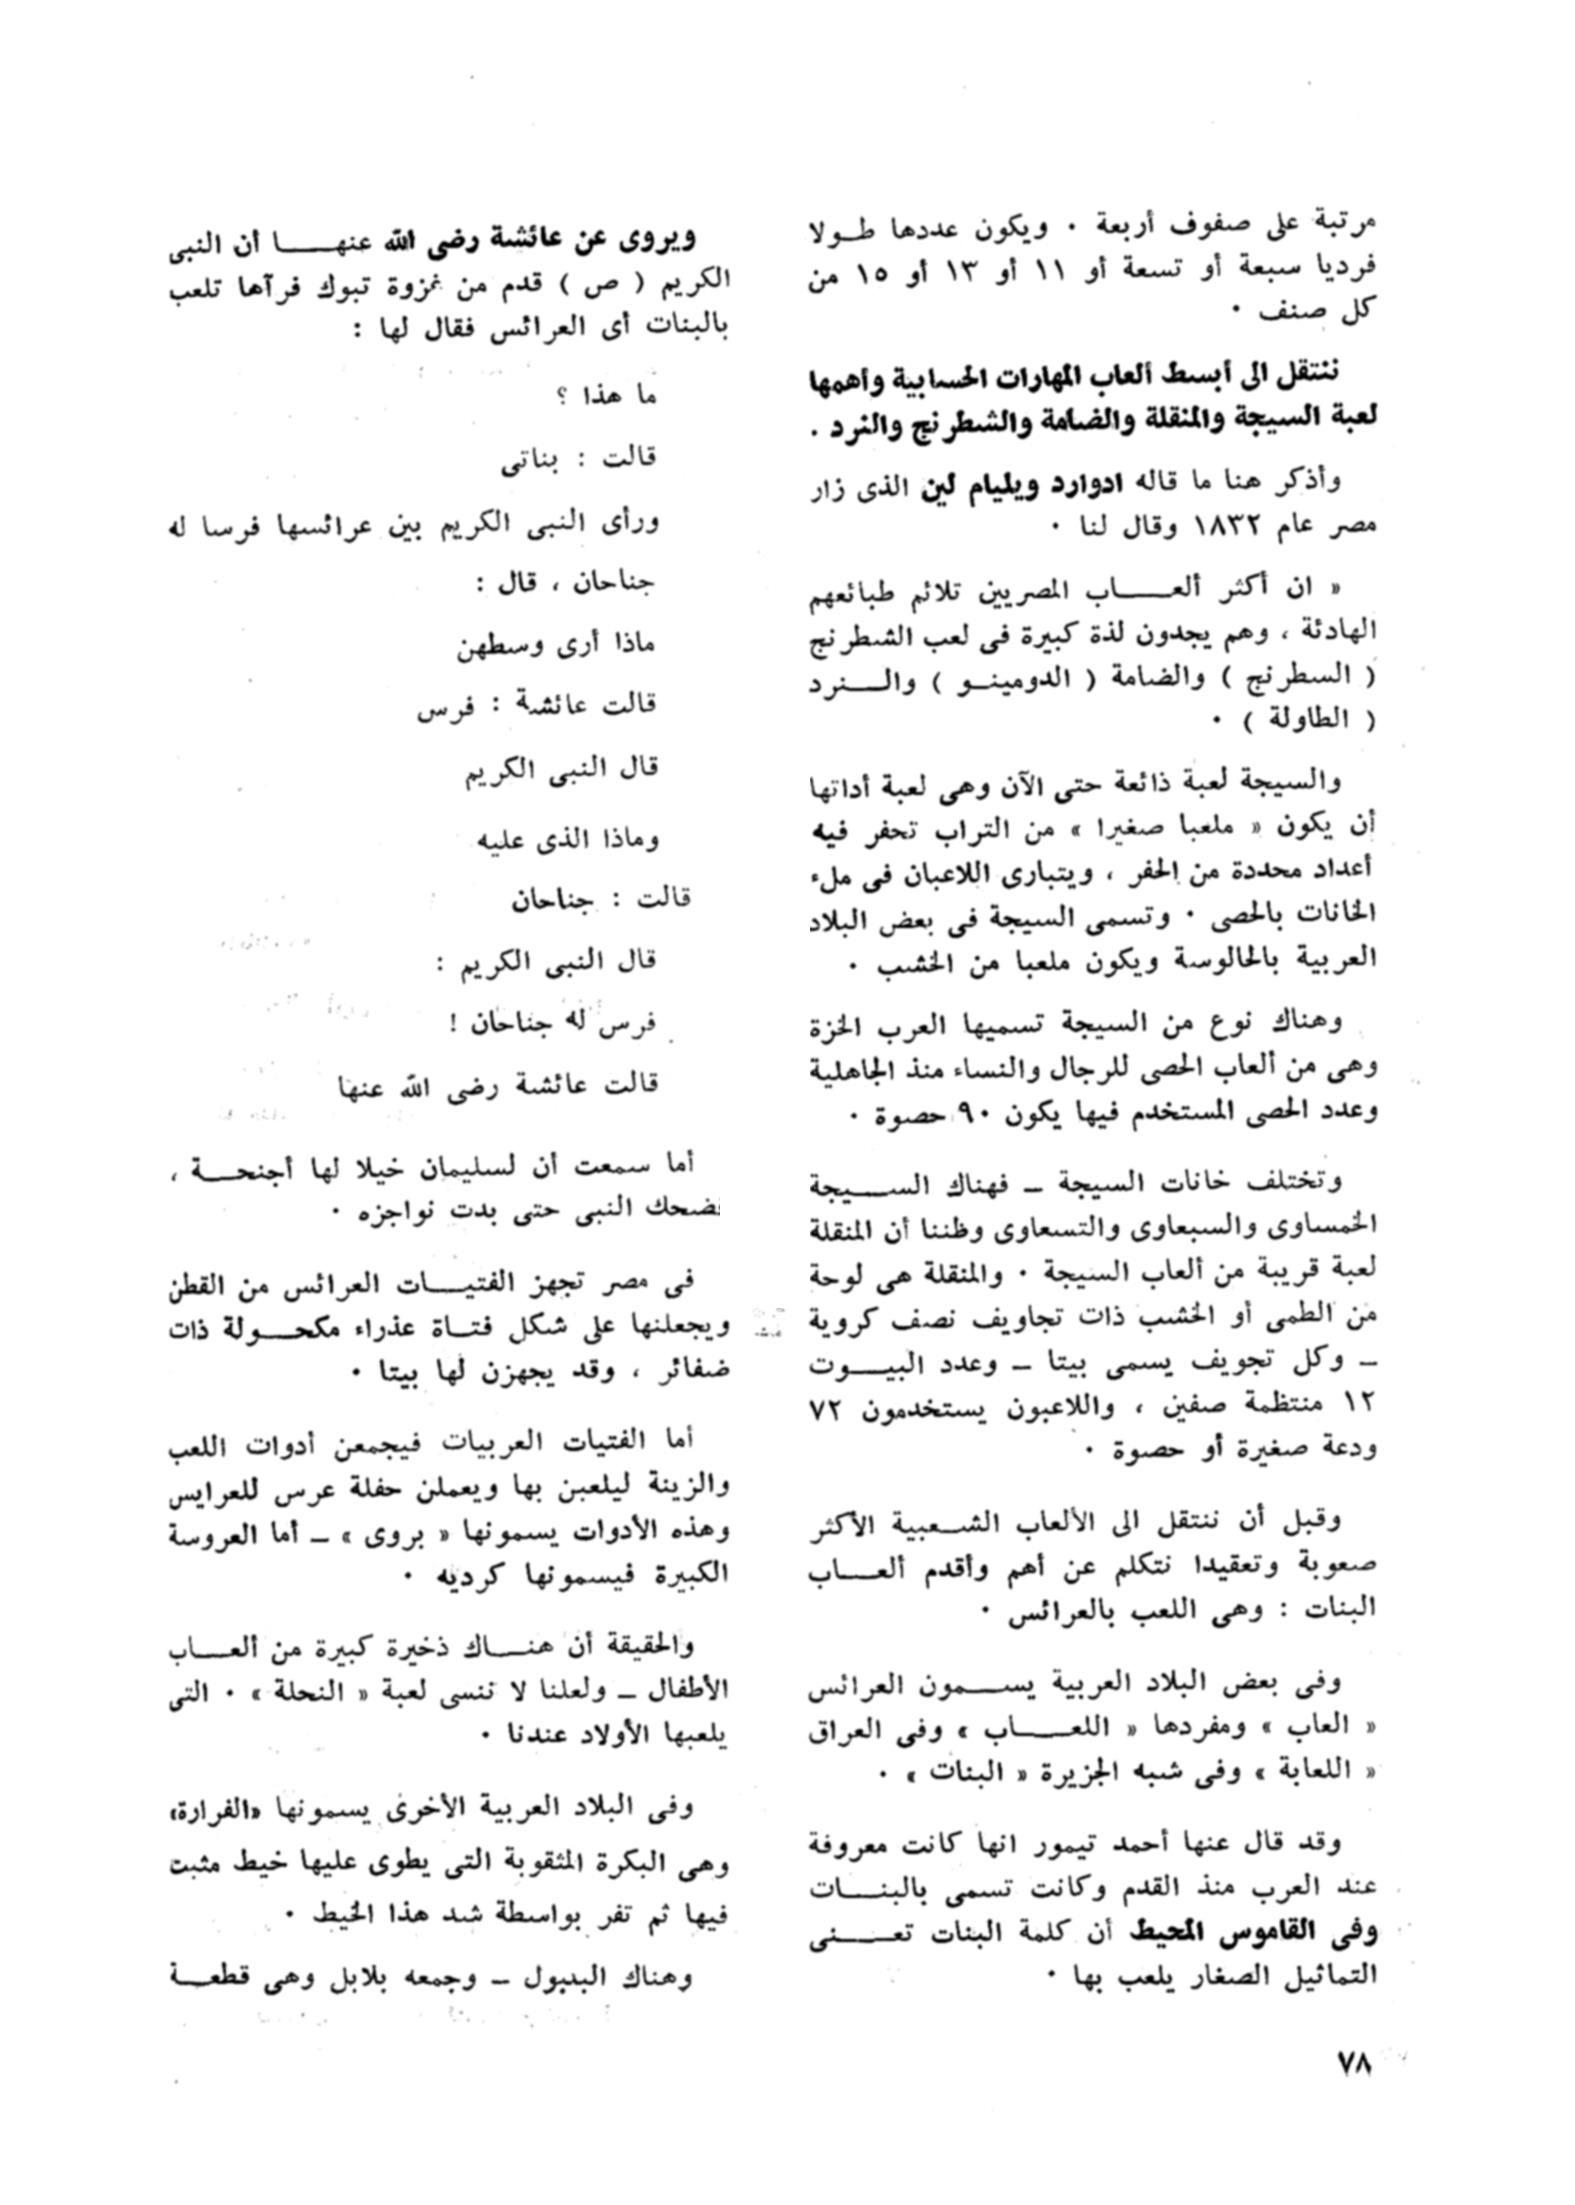 مرتبة على صفوف أربعة . ويكون عددها طـولا
فرديا سبعة أو تسعة أو ١١ أو ١٣ أو ١٥ من
كل صنف .
ننتقل الى أبسط ألعاب المهارات الحسابية وأهمها
لعبة السيجة والمنقلة والضامة والشطرنج والنرد .
وأذكر هنا ما قاله ادوارد ويليام لين الذى زار
مصر عام ١٨٣٢ وقال لنا .
« ان أكثر ألعـــاب المصريين تلائم طبائعهم
الهادئة ، وهم يجدون لذة كبيرة فى لعب الشطرنج
( السطرنج ) والضامة ( الدومينـو ) والــنرد
( الطاولة ) .
والسيجة لعبة ذائعة حتى الآن وهى لعبة أداتها
أن يكون « ملعبا صغيرا » من التراب تحفر فيه
أعداد محددة من الحفر ، ويتبارى اللاعبان فى ملء
الخانات بالحصى . وتسمى السيجة فى بعض البلاد
العربية بالخالوسة ويكون ملعبا من الخشب .
وهناك نوع من السيجة تسميها العرب الخزة
وهى من ألعاب الحصى للرجال والنساء منذ الجاهلية
وعدد الحصى المستخدم فيها يكون ٩٠ حصوة .
وتختلف خانات السيجة ـ فهناك الســيجة
الخمساوى والسبعاوى والتسعاوى وظننا أن المنقلة
لعبة قريبة من ألعاب السيجة . والمنقلة هى لوحة
من الطمى أو الخشب ذات تجاويف نصف كروية
ـ وكل تجويف يسمى بيتا ـ وعدد البيــوت
١٢ منتظمة صفين ، واللاعبون يستخدمون ٧٢
ودعة صغيرة أو حصوة .
وقبل أن ننتقل الى الألعاب الشـعبية الأكثر
صعوبة وتعقيدا نتكلم عن أهم وأقدم ألعـــاب
البنات : وهى اللعب بالعرائس .
وفى بعض البلاد العربية يســمون العرائس
« العاب » ومفردها « اللعـــاب » وفى العراق
« اللعابة » وفى شبه الجزيرة « البنات » .
وقد قال عنها أحمد تيمور انها كانت معروفة
عند العرب منذ القدم وكانت تسمى بالبنــات
وفى القاموس المحيط أن كلمة البنات تعــنى
التماثيل الصغار يلعب بها .
ويروى عن عائشة رضى الله عنهـــا أن النبى
الكريم ( ص ) قدم من غزوة تبوك فرآها تلعب
بالبنات أى العرائس فقال لها :
ما هذا ؟
قالت : بناتى
ورأى النبى الكريم بين عرائسها فرسا له
جناحان ، قال :
ماذا أرى وسطهن
قالت عائشة : فرس
قال النبى الكريم
وماذا الذى عليه
قالت : جناحان
قال النبى الكريم :
فرس له جناحان !
قالت عائشة رضى الله عنها
أما سمعت أن لسليمان خيلا لها أجنحــة ،
فضحك النبى حتى بدت نواجزه .
فى مصر تجهز الفتيــات العرائس من القطن
ويجعلنها على شكل فتـاة عذراء مكحــولة ذات
ضفائر ، وقد يجهزن لها بيتا .
أما الفتيات العربيات فيجمعن أدوات اللعب
والزينة ليلعبن بها ويعملن حفلة عرس للعرايس
وهذه الأدوات يسمونها « بروى » ـ أما العروسة
الكبيرة فيسمونها كرديه .
والحقيقة أن هنــاك ذخيرة كبيرة من ألعــاب
الأطفال ـ ولعلنا لا ننسى لعبة « النحلة » . التى
يلعبها الأولاد عندنا .
وفى البلاد العربية الأخرى يسمونها «الفرارة»
وهى البكرة المثقوبة التى يطوى عليها خيط مثبت
فيها ثم تفر بواسطة شد هذا الخيط .
وهناك البدبول ـ وجمعه بلابل وهى قطعــة
٧٨